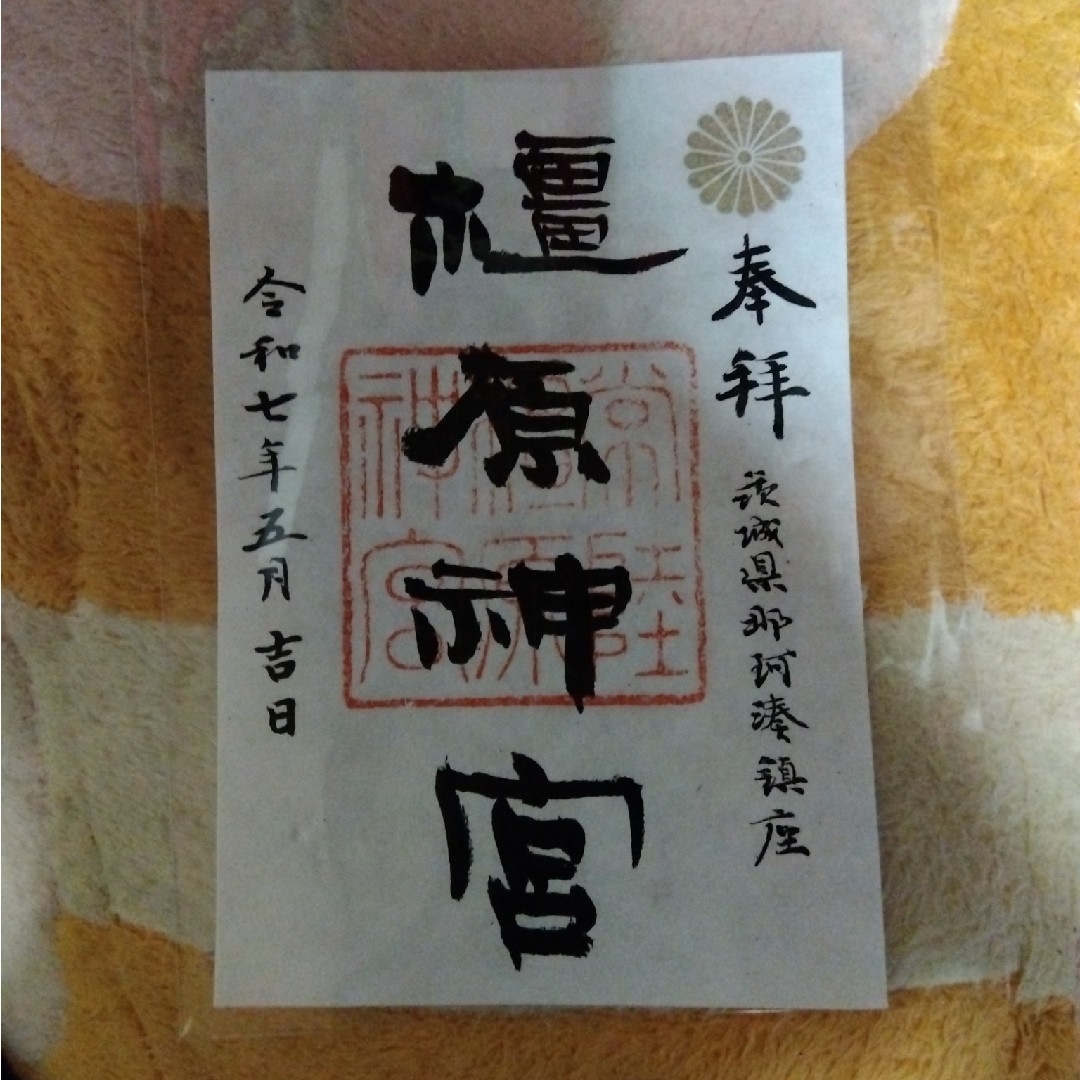 奉拝
茨城県那珂湊鎮座
橿原神宮
常陸
橿原
神宮
令和七年五月吉日